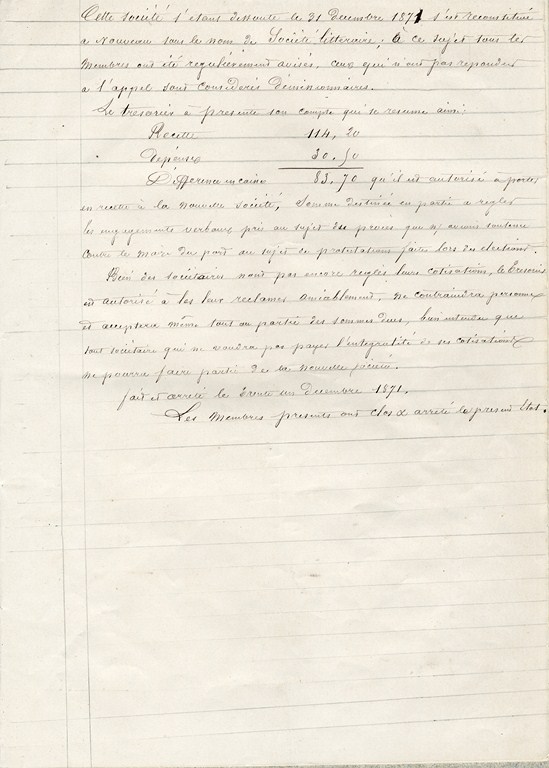 Cette société s'étant dissoute le 31 Decembre 1871 s'est reconstituée
a nouveau sous le nom de Société littéraire, à ce sujet tous les
Membres ont été régulièrement avisés, ceux qui n'ont pas repondu
à l'appel sont considérés Démissionnaires.
Le trésorier à présenté son compte qui se resume ainsi:
Recette 114,20
Dépenses 30.50
Différence en caisse 83.70 qu'il est autorisé à porter
en recette à la nouvelle société, somme destinée en partie à regler
les engagements verbaux pris au sujet du procès que n. avons soutenu
contre le maire du au sujet de protestations faites lors des elections.
Bien des sociétaires nont pas encore regles leurs cotisations, le tresorier
est autorisé à les leur réclamer amiablement, ne contraindra personne
et acceptera même tout ou partie des sommes dues, bien entendu que
tout sociétaire qui ne voudra pas payer l'intégralité de ses cotisations
ne pourra faire partie de la nouvelle société.
fait et arreté le trente un Decembre 1871.
Les Membres présents ont clos & arrêté le présent état.